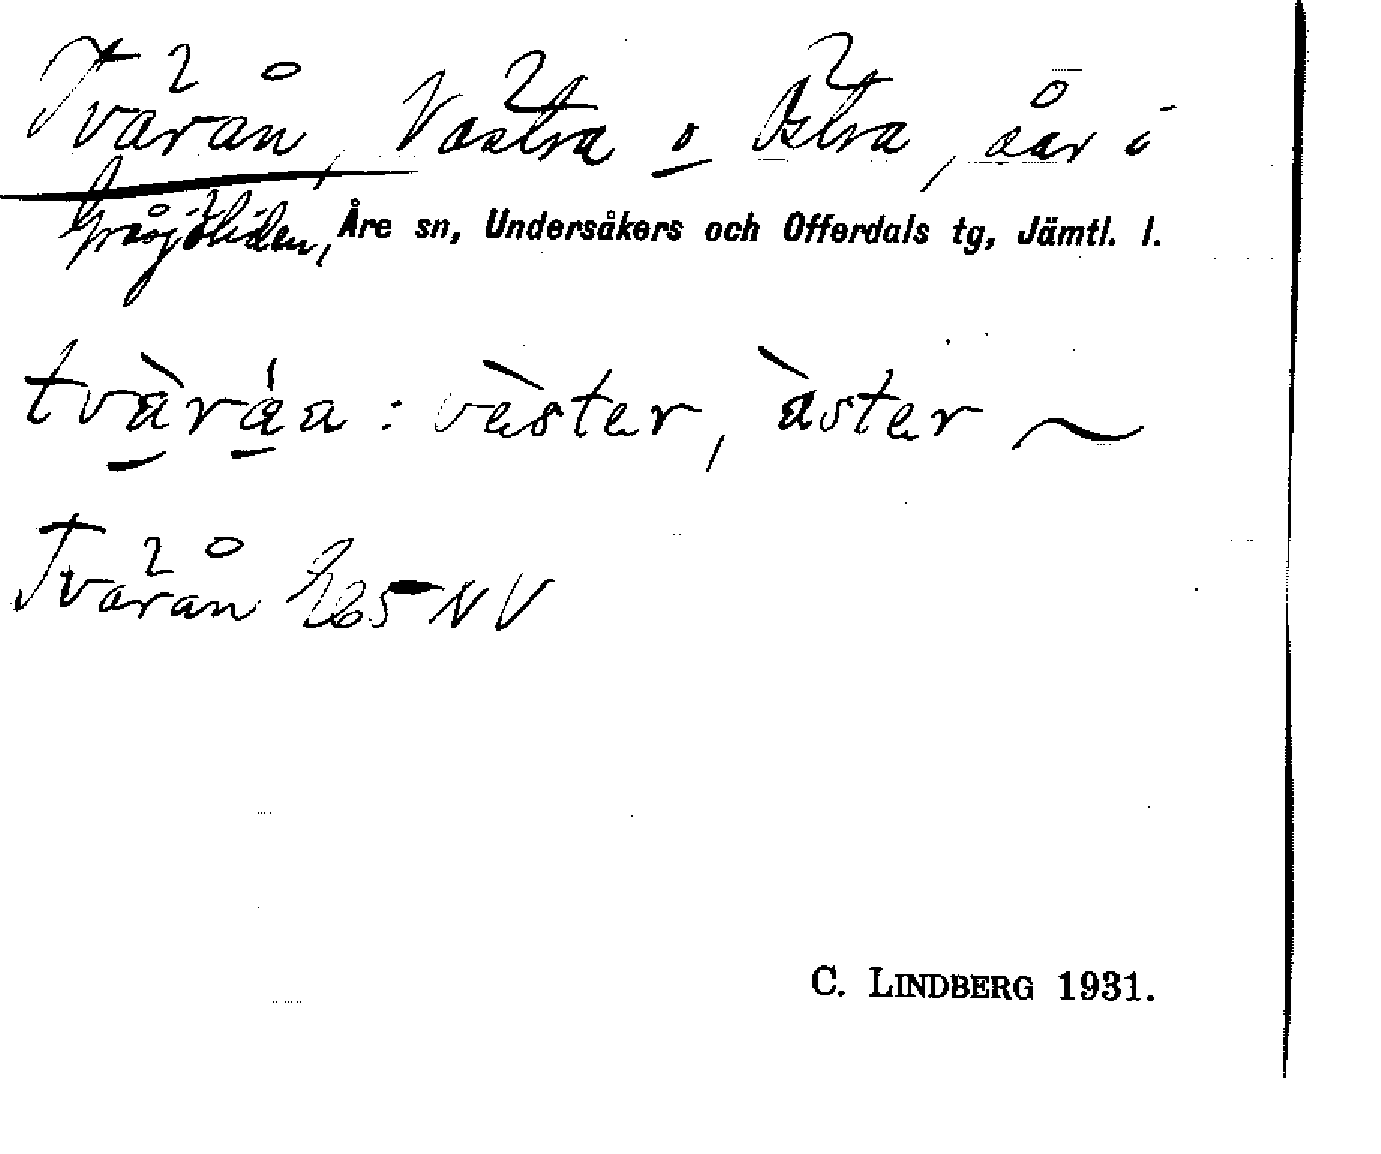 Tvärån, Västra o Östra, åar i
Gråsjöliden, Åre sn, Undersåkers och Offerdals tg, Jämtl. l.
tvàráa : vèster, àster ~
Tvärån NV
C. LINDBERG 1931.